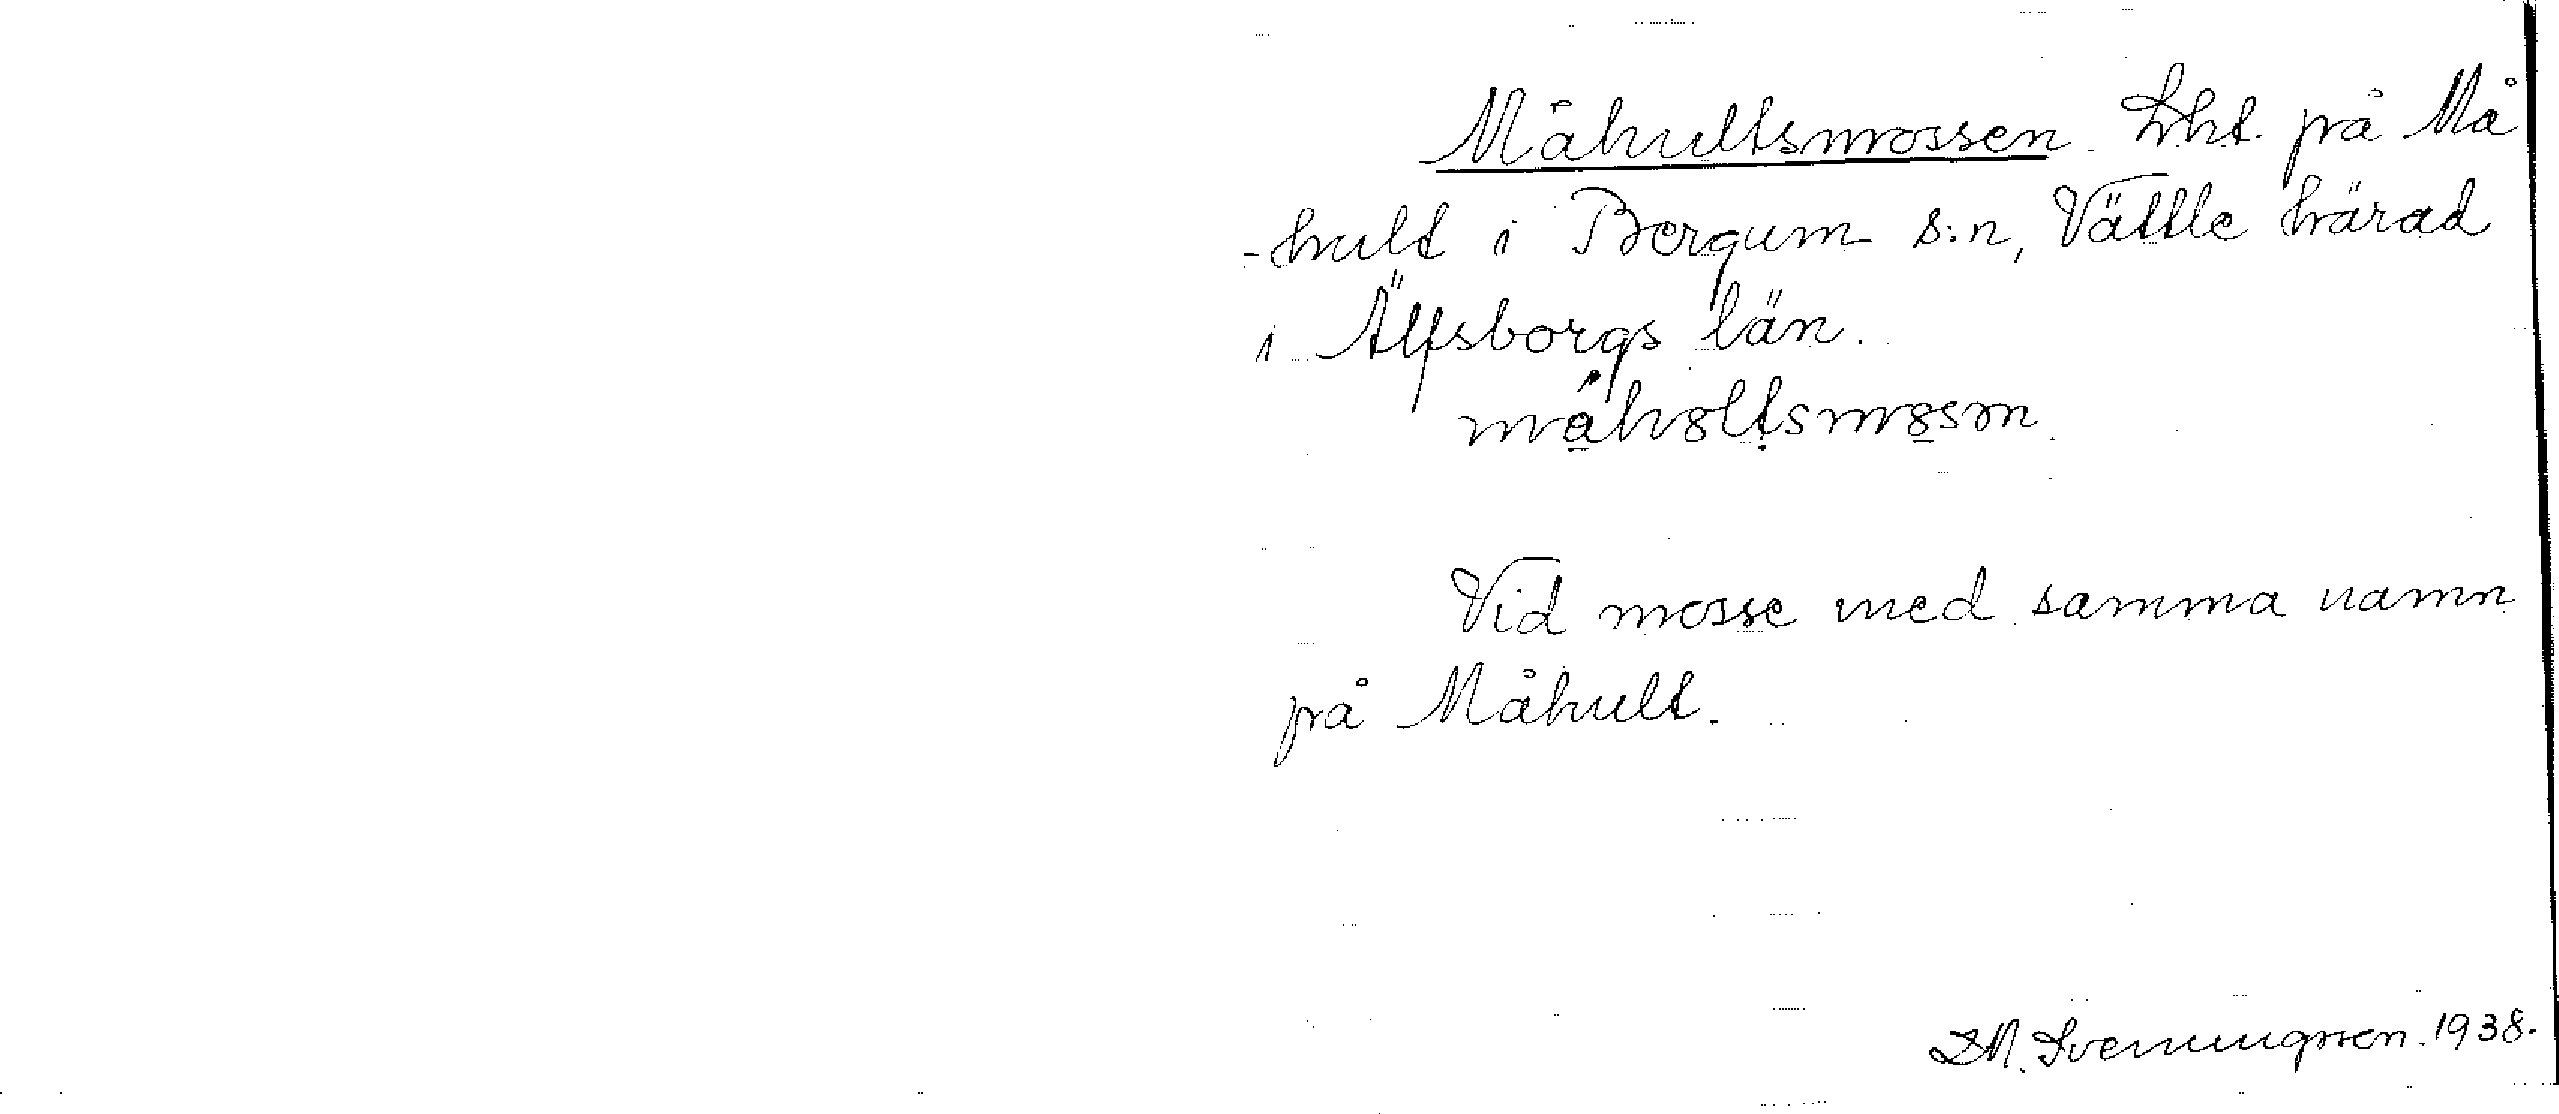 Måhultsmossen. Lht. på Må
-hult i Bergum s:n, Vättle härad
i Älfsborgs län.
måhɷltsmɷsən
Vid mosse med samma namn
på Måhult.
Svenningsson. 1938.